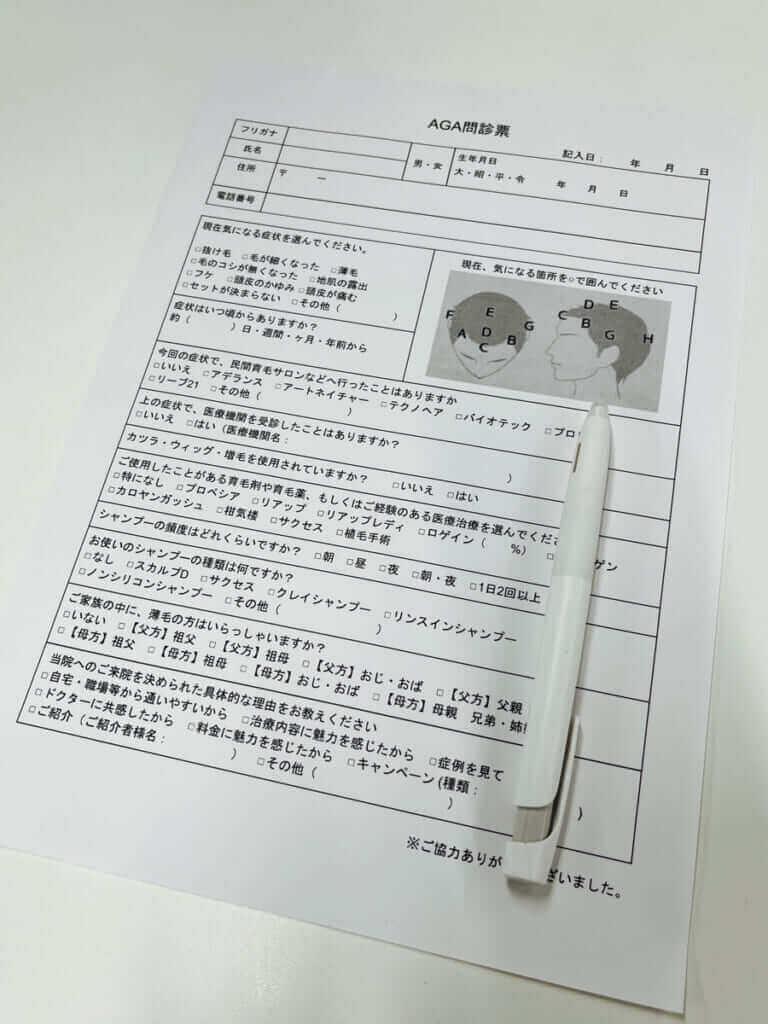 AGA問診票
記入日： 年 月 日
フリガナ
氏名
男・女
生年月日
大・昭・平・令 年 月 日
住所
〒 ー
電話番号
現在気になる症状を選んでください。
□抜け毛 □毛が細くなった □薄毛
□毛のコシが無くなった □地肌の露出
□フケ □頭皮のかゆみ □頭皮が痛む
□セットが決まらない □その他（ ）
症状はいつ頃からありますか？
約（ ）日・週間・ヶ月・年前から
現在、気になる箇所を○で囲んでください
F E G A D B C
C D E B G H
今回の症状で、民間育毛サロンなどへ行ったことはありますか
□いいえ □アデランス □アートネイチャー □テクノヘア □バイオテック □プロ
□リーブ21 □その他（ ）
上の症状で、医療機関を受診したことはありますか？
□いいえ □はい（医療機関名： ）
カツラ・ウィッグ・増毛を使用されていますか？ □いいえ □はい
ご使用したことがある育毛剤や育毛薬、もしくはご経験のある医療治療を選んでくださ
□特になし □プロペシア □リアップ □リアップレディ □ロゲイン（ %） □ ゲン
□カロヤンガッシュ □柑気楼 □サクセス □植毛手術
シャンプーの頻度はどれくらいですか？ □朝 □昼 □夜 □朝・夜 □1日2回以上
お使いのシャンプーの種類は何ですか？
□なし □スカルプD □サクセス □クレイシャンプー □リンスインシャンプー
□ノンシリコンシャンプー □その他（ ）
ご家族の中に、薄毛の方はいらっしゃいますか？
□いない □【父方】祖父 □【父方】祖母 □【父方】おじ・おば □【父方】父親
□【母方】祖父 □【母方】祖母 □【母方】おじ・おば □【母方】母親 兄弟・姉
当院へのご来院を決められた具体的な理由をお教えください
□自宅・職場等から通いやすいから □治療内容に魅力を感じたから □症例を見て
□ドクターに共感したから □料金に魅力を感じたから □キャンペーン(種類： )
□ご紹介（ご紹介者様名： ） □その他（ ）
※ご協力ありが ざいました。